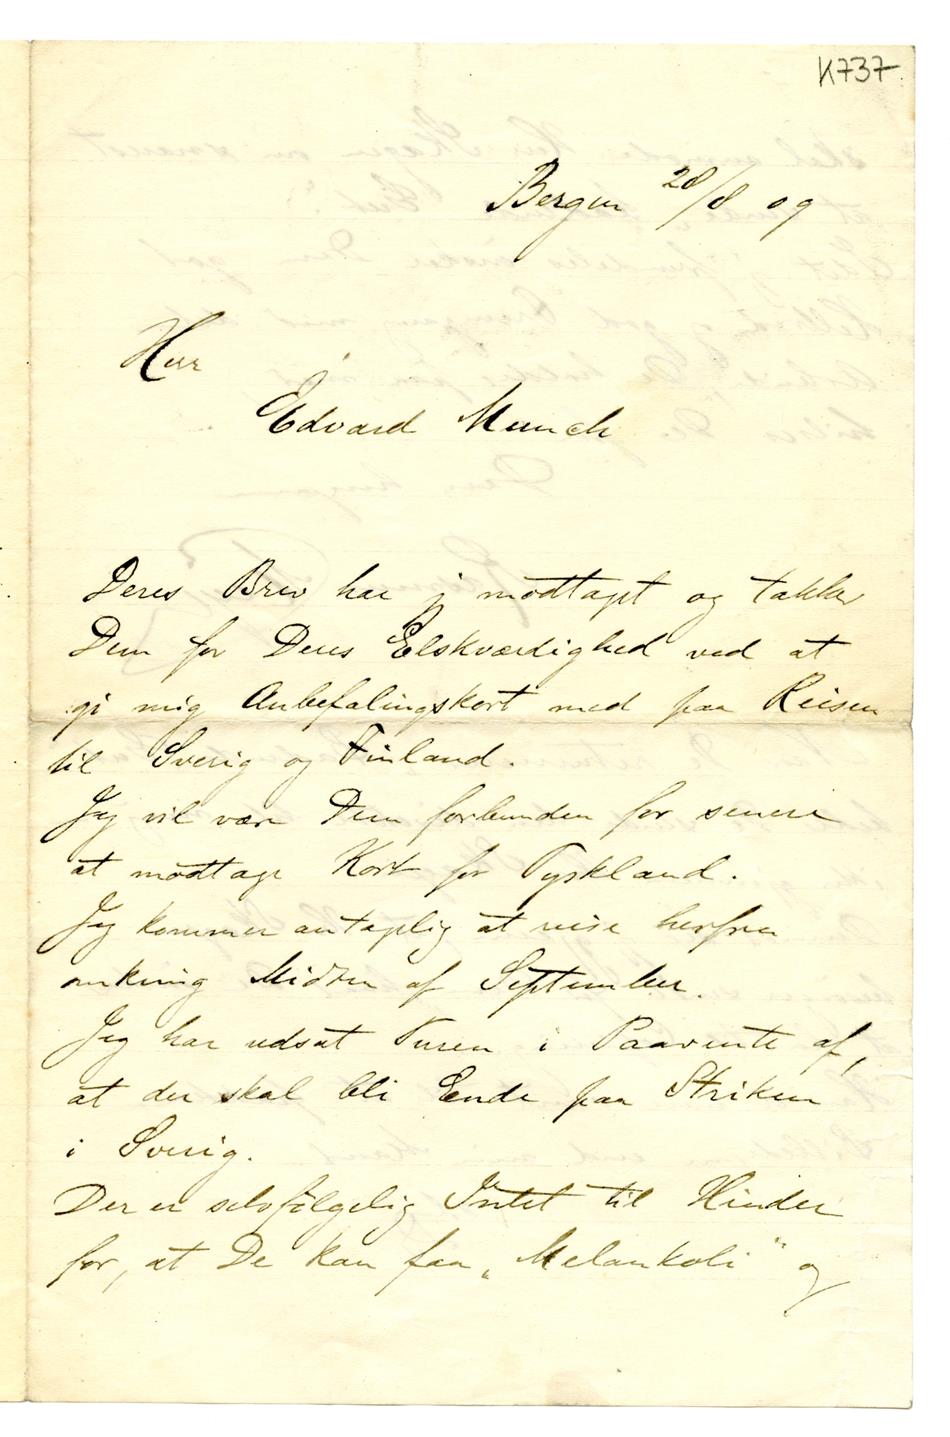 K737.
Bergen 28/8 09
Herr
Edvard Munch
Deres Brev har jeg modtaget og takker
Dem for Deres Elskværdighed ved at
gi mig Anbefalingskort med paa Reisen
til Sverig og Finland.
Jeg vil være Dem forbunden for senere
at modtage Kort for Tyskland.
Jeg kommer antagelig at reise herfra
omkring Midten af September.
Jeg har udsat Turen i Paavente af,
at der skal bli Ende paa Striken
i Sverig.
Der er selvfølgelig Intet til Hinder
for, at De kan faa „Melankoli" og